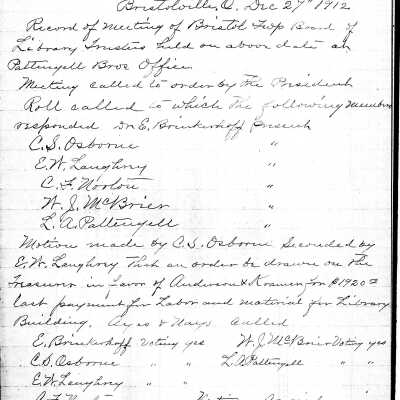 Bristolville, O. Dec 27th 1912
Record of Meeting of Bristol Twp Board of
Library Trustees held on above date at
Pattengell Bros Office
Meeting called to order by The President
Roll called to which the following members
responded Dr. E. Brinkerhoff Present
C. S. Osborne "
E. W. Laughry "
C. F. Norton "
W. J. McBrier "
L. A. Pattengell "
Motion made by C. S. Osborne Seconded by
E. W. Laughry That an order be drawn on The
Treasurer in favor of Anderson & Kramer for $1920.00
last payment for Labor and material for Library
Building. Ayes & Nays called
E. Brinkerhoff Voting yes W. J. McBrier Voting yes
C. S. Osborne " " L. A. Pattengell " "
E. W. Laughry " "